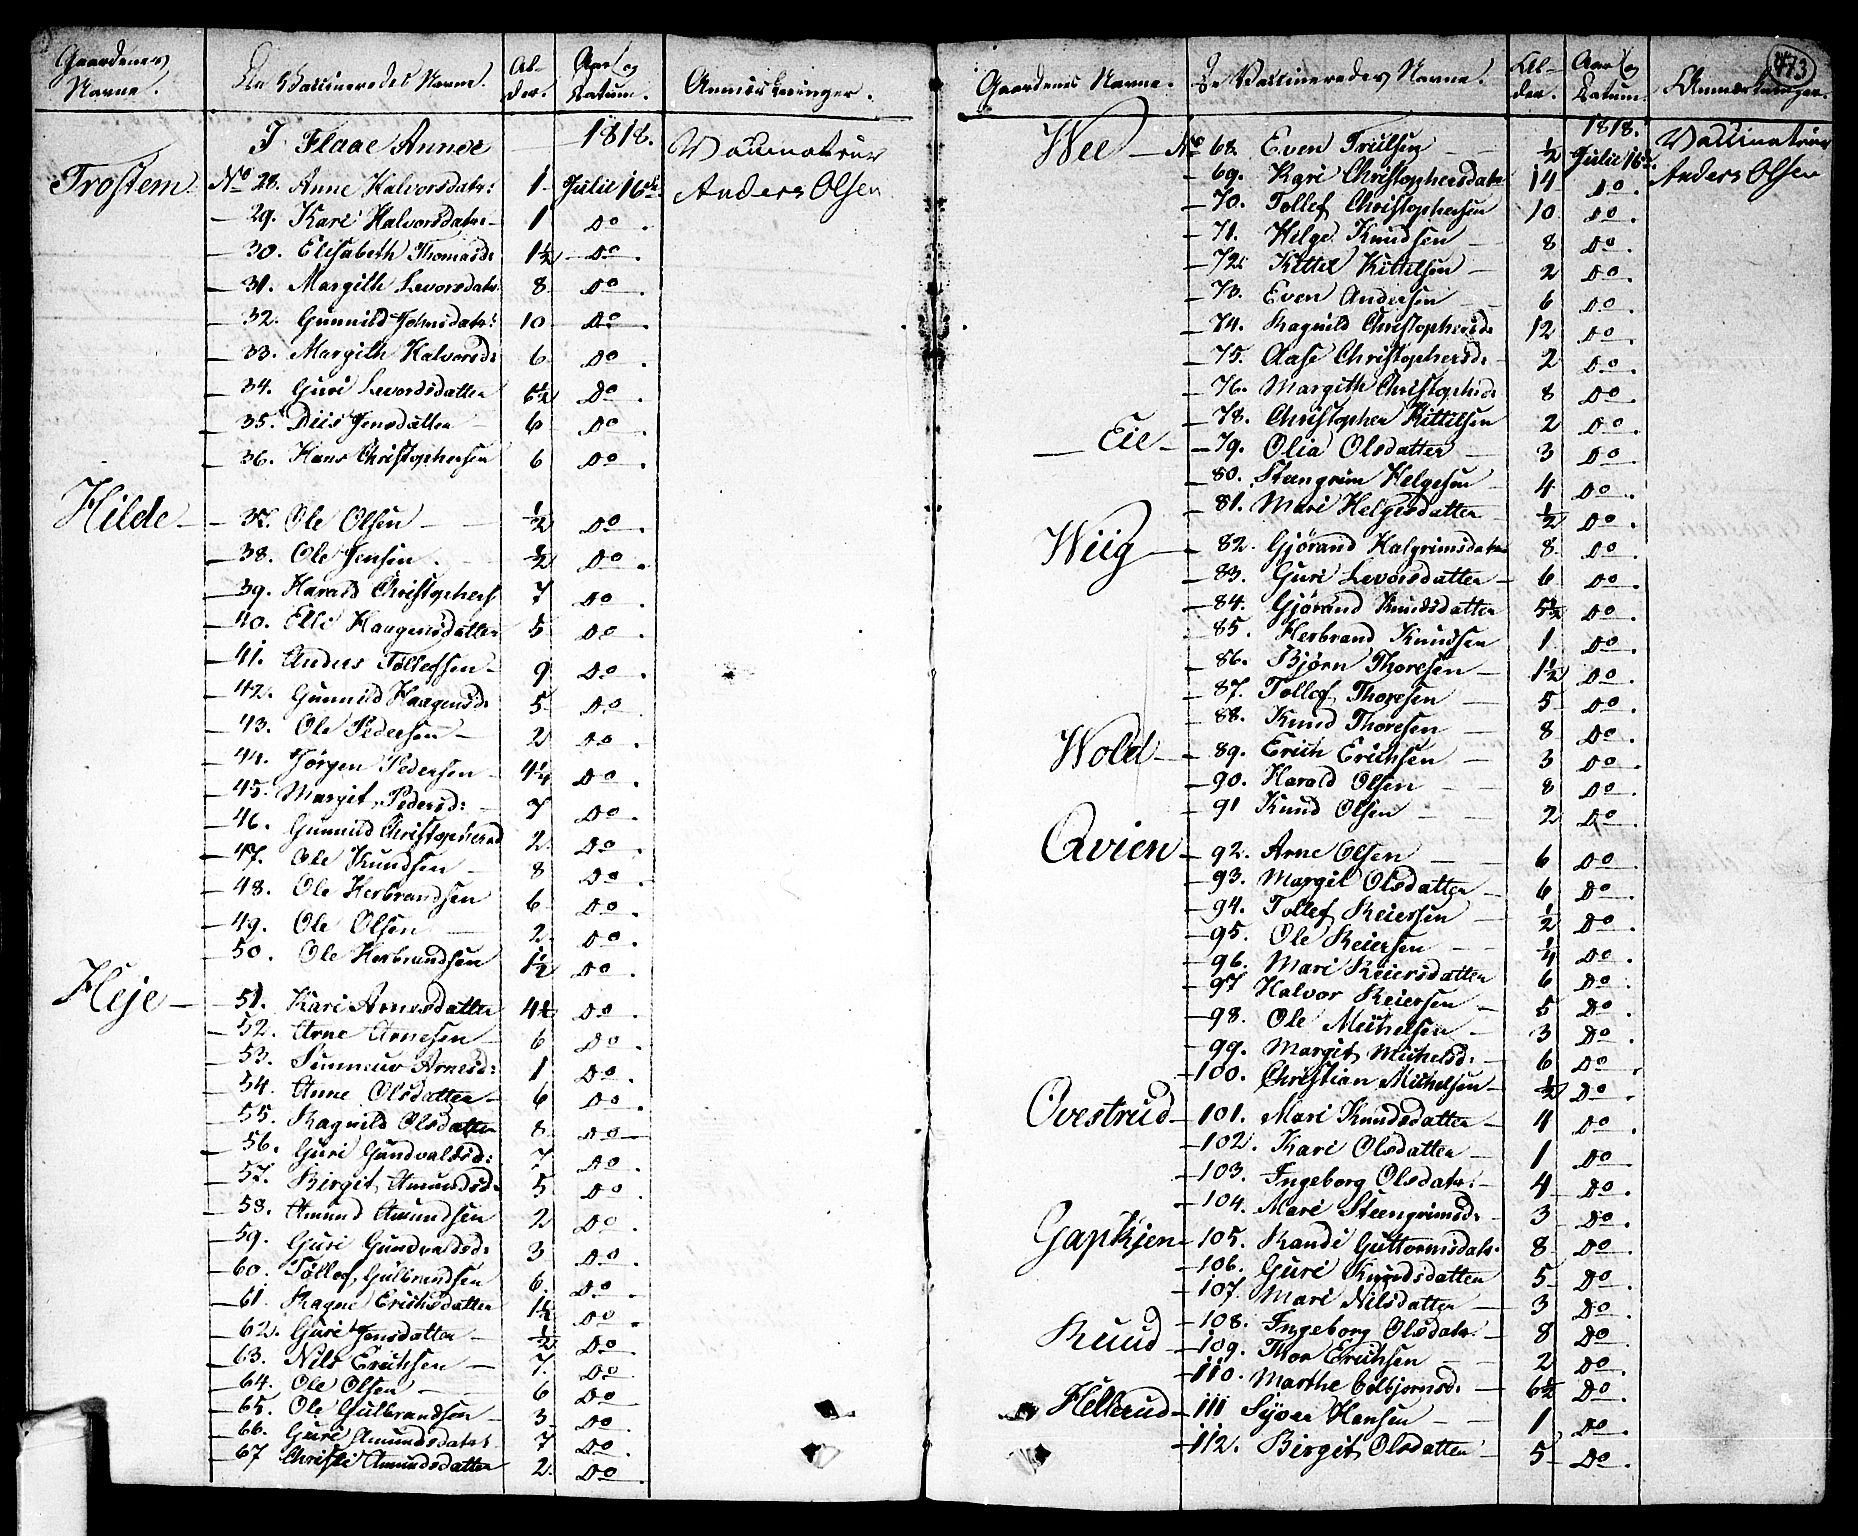 Gaardenes Navne. De Vaccineredes Navne. Al-der. Aar og Datum. Anmærkninger.
I Flaae Annex 1818. Vaccinateur
Trostem No 28. Anne Halvorsdatr: 1 Julii 16de Anders Olsen
29. Kari Halvorsdatr 1 Do
30. Elisabeth Thomasd: 1½ Do
31. Margith Levorsdatr: 8 Do
32. Gunnild Johnsdatr: 10 Do
33. Margith Halvorsd: 6 Do
34. Guri Levordsdatter 6½ Do
35. Diis Jensdatter 6 Do
36. Hans Christophersen 6 Do
Hilde 37. Ole Olsen ½ Do
38. Ole Jensen ½ Do
39. Harald Christophers 7 Do
40. Elli Haagensdatter 5 Do
41. Anders Tollefsen 9 Do
42. Gunnild Haagensd: 5 Do
43. Ole Pedersen 2 Do
44. Jörgen Pedersen 4¼ Do
45. Margit Pedersd: 7 Do
46. Gunnild Christophersd 2 Do
47. Ole Knudsen 8 Do
48. Ole Herbrandsen 6 Do
49. Ole Olsen 2 Do
50. Ole Herbrandsen 1½ Do
Heje 51. Kari Arnesdatter 4½ Do
52. Arne Arnesen 6 Do
53. Sunneuv Arnesd: 1 Do
54. Anne Olsdatter 6 Do
55. Ragnild Olsdatter 8 Do
56. Guri Gundvaldsd: 7 Do
57. Birgit Amundsd: 5 Do
58. Amund Amundsen 2 Do
59. Guri Gundvaldsd: 3 Do
60. Tollef Gulbrandsen 6 Do
61. Ragne Erichsdatter 1½ Do
62. Guri Jensdatter ½ Do
63. Nils Erichsen 7 Do
64. Ole Olsen 6 Do
65. Ole Gulbrandsen 3 Do
66. Guri Amundsdatr: 7 Do
67 Christi Amundsdatter 2 Do
473
Gaardenes Navne. De Vaccineredes Navne. Al-der. Aar og Datum. Anmærkninger.
1818. Vaccinateur
Wee No 68. Even Truлsen ½ Julii 16de Anders Olsen
69. Kari Christophersdatr 14 Do
70. Tollef Christophersen 10 Do
71. Helge Knudsen 8 Do
72. Kittel Kittelsen 2 Do
73. Even Andersen 6 Do
74. Ragnild Christophersd: 12 Do
75. Aase Christophersd: 2 Do
76. Margith Christophersd 8 Do
78. Christopher Kittelsen 2 Do
Eie 79. Olia Olsdatter 3 Do
80. Steengrim Helgesen 4 Do
81. Mari Helgesdatter ½ Do
Wiig 82. Gjörand Halgrimsdatr 8 Do
83. Guri Levorsdatter 6 Do
84. Gjörand Knudsdatter 5½ Do
85. Herbrand Knudsen 1 Do
86. Björn Thoresen 1½ Do
87. Tollef Thoresen 5 Do
88. Knud Thoresen 8 Do
Wold 89. Erich Erichsen 3 Do
90. Harald Olsen 8 Do
91 Knud Olsen 2 Do
Qvien 92. Arne Olsen 6 Do
93. Margit Olsdatter 6 Do
94. Tollef Reiersen ½ Do
95. Ole Reiersen ¼ Do
96. Mari Reiersdatter 6 Do
97 Halvor Reiersen 5 Do
98. Ole Michelsen 3 Do
99. Margit Michelsd: 6 Do
100. Christian Michelsen ½ Do
Ovestrud 101. Mari Knudsdatter 4 Do
102. Kari Olsdatter 1 Do
103. Ingeborg Olsdatr: 4 Do
104. Mari Steengrimsd: 3 Do
Gapkjen 105. Randi Guttormsdatr. 8 Do
106. Guri Knudsdatter 5 Do
107. Mari Nilsdatter 3 Do
Ruud 108. Ingeborg Olsdatr: 8 Do
109. Thor Erichsen 2 Do
110. Marthe Colbjornsd: 6½ Do
Hellerud 111 Syver Hansen 1 Do
112. Birgit Olsdatter 5 Do